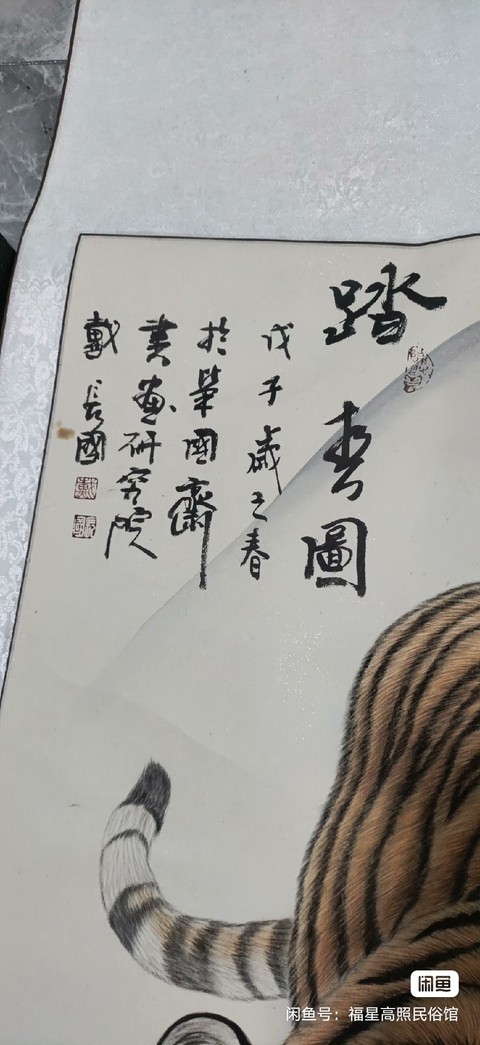 踏春圖
戊子歲之春
於華國齋
書畫研究院
戴長國
闲鱼
闲鱼号：福星高照民俗馆